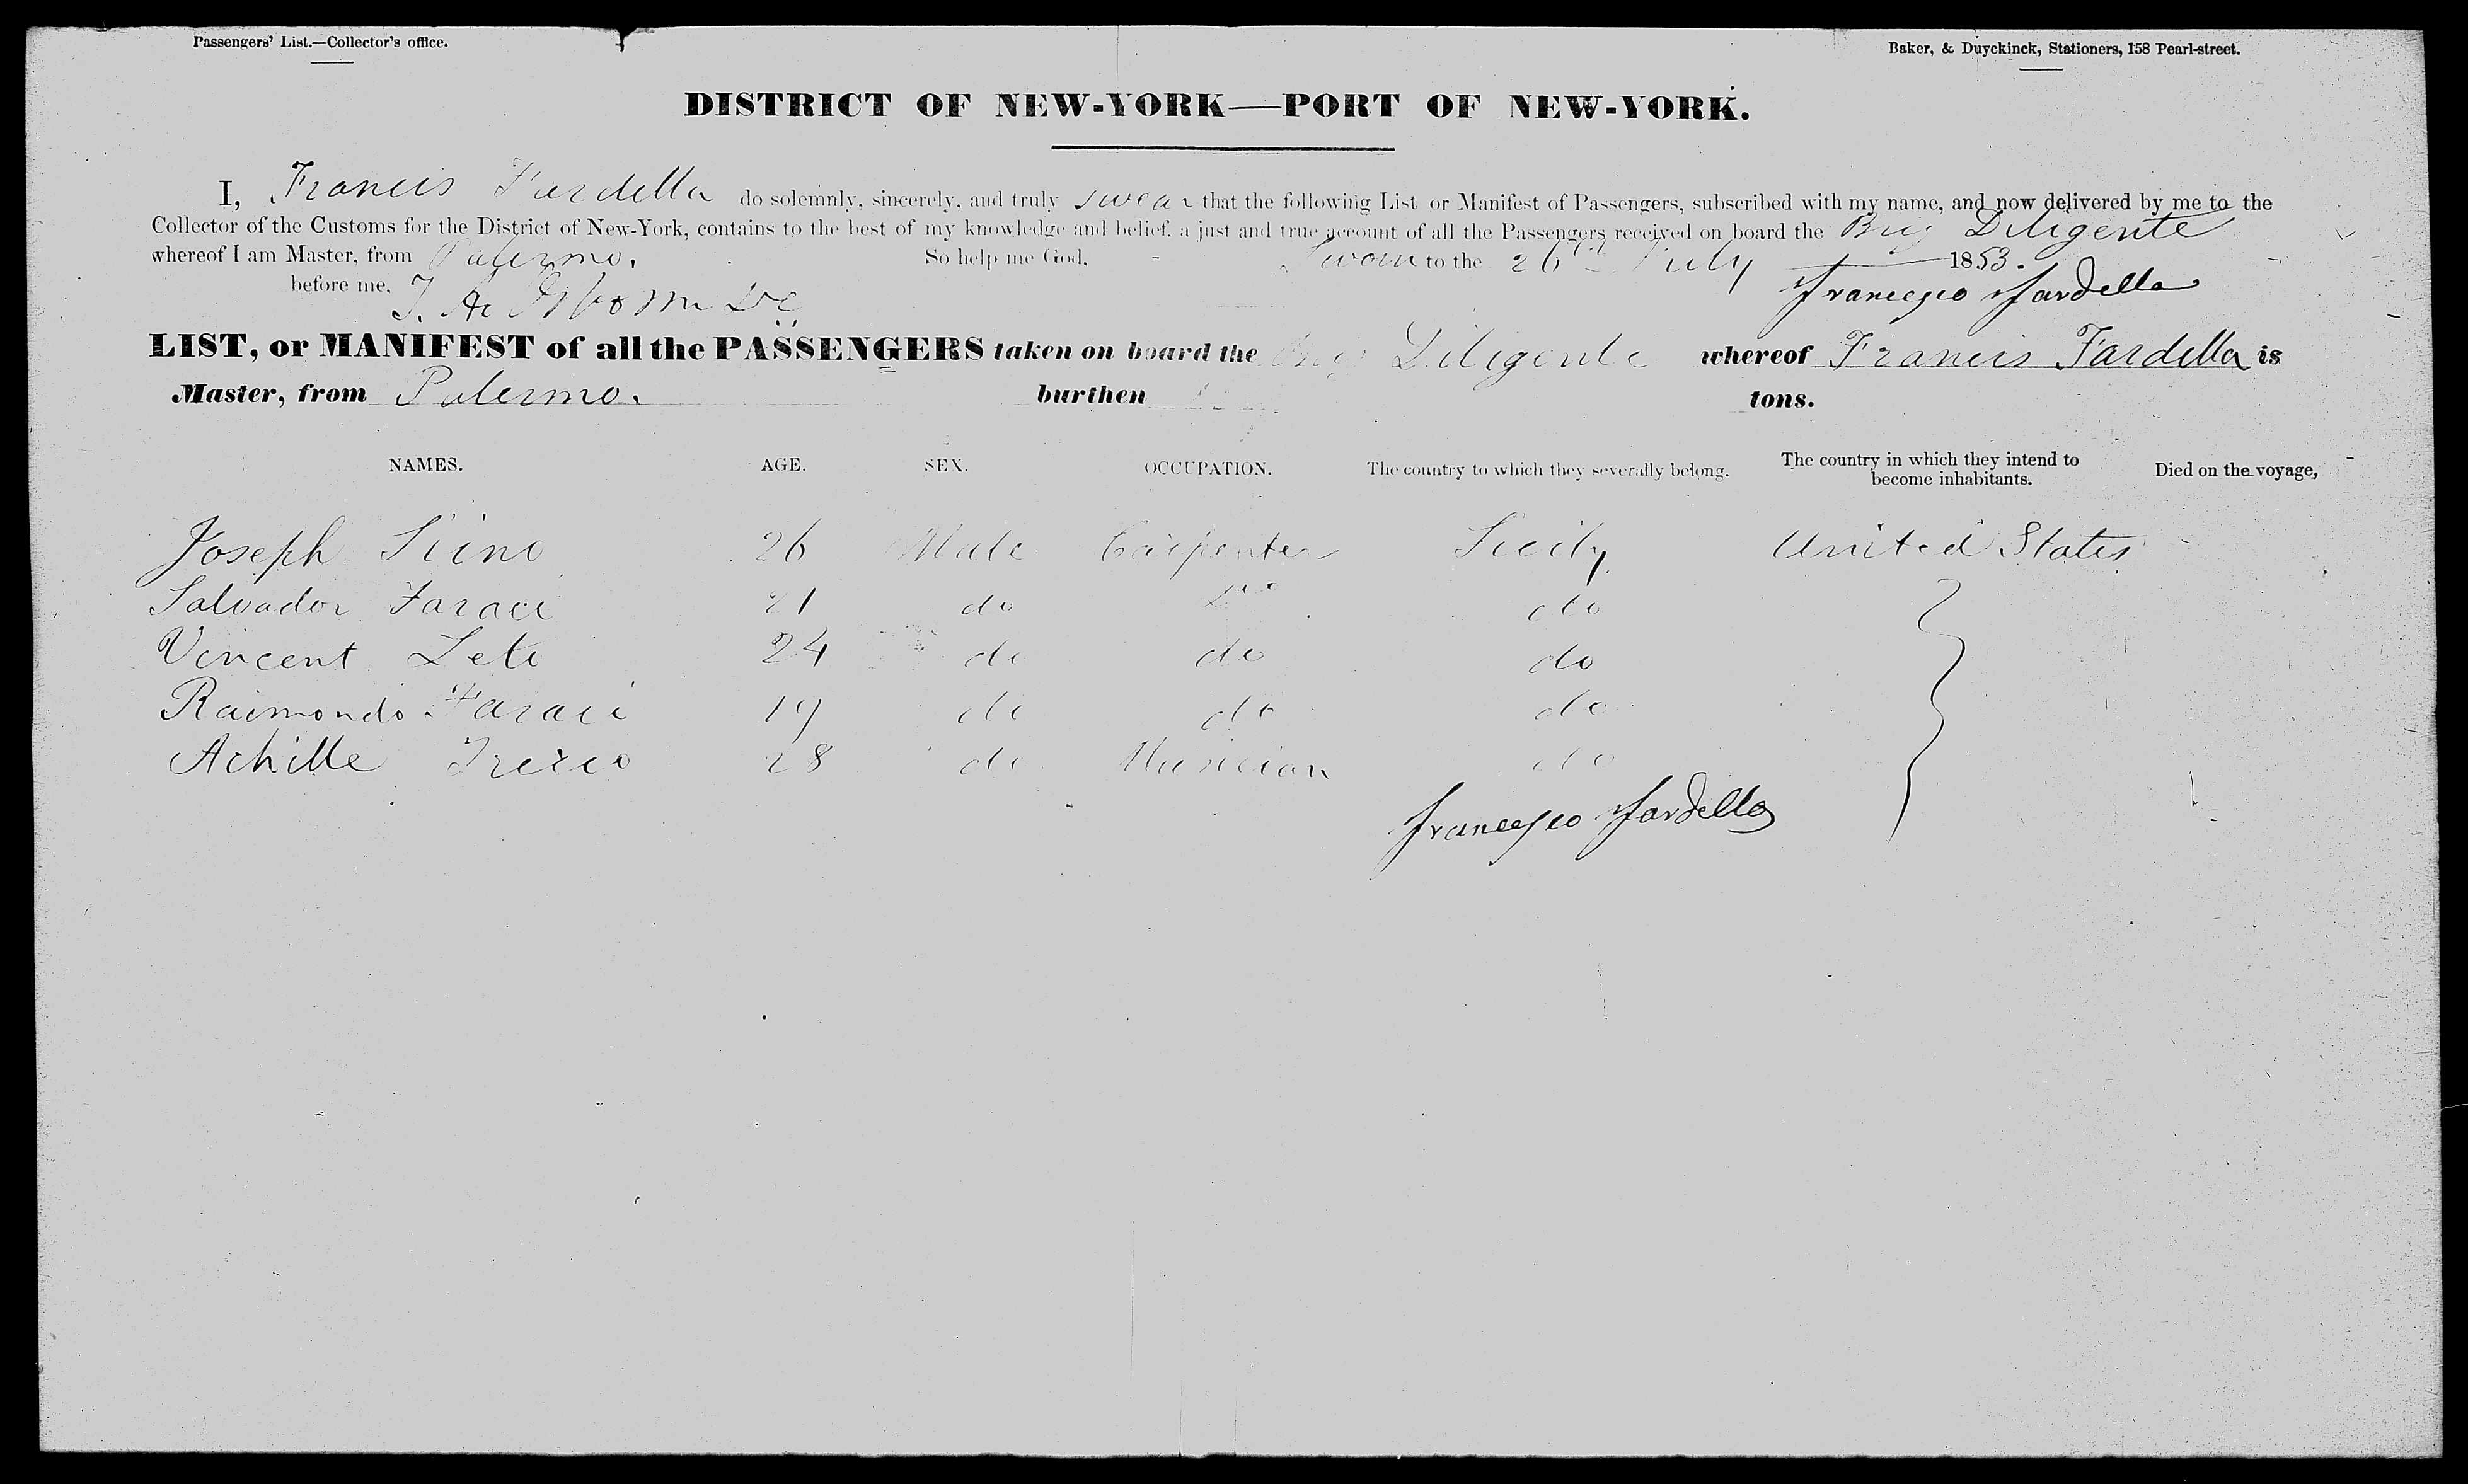 Passengers' List.—Collector's office.
Baker, & Duyckinck, Stationers, 158 Pearl-street.
DISTRICT OF NEW-YORK—PORT OF NEW-YORK.
I, Francis Fardella do solemnly, sincerely, and truly swear that the following List or Manifest of Passengers, subscribed with my name, and now delivered by me to the
Collector of the Customs for the District of New-York, contains to the best of my knowledge and belief, a just and true account of all the Passengers received on board the Brig Diligente
whereof I am Master, from Palermo. So help me God. Sworn to the 26th July 1853.
before me, Francesco Fardella
LIST, or MANIFEST of all the PASSENGERS taken on board the Brig Diligente whereof Francis Fardella is
Master, from Palermo. burthen tons.
NAMES. AGE. SEX. OCCUPATION. The country to which they severally belong. The country in which they intend to become inhabitants. Died on the voyage,
Joseph Siino 26 Male Carpenter Sicily United States
Salvador Faraci 21 do do do
Vincent Leto 24 do do do
Raimondo Faraci 19 do do do
Achille 28 do Musician do
Francesco Fardella